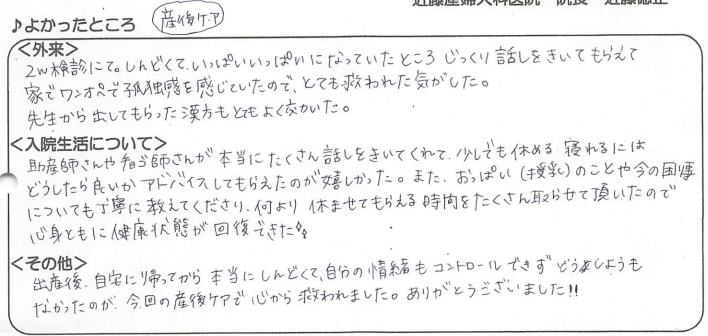 近藤産婦人科医院 院長 近藤
♪よかったところ 産後ケア
<外来>
2w検診にて。しんどくて、いっぱいいっぱいになっていたところ じっくり 話しをきいてもらえて
家でワンオペで孤独感を感じていたので、とても救われた気がした。
先生から出してもらった漢方もとてもよく効いた。
<入院生活について>
助産師さんや看ゴ師さんが 本当にたくさん話しをきいてくれて、少しでも休める 寝れるには
どうしたら良いか アドバイスしてもらえたのが嬉しかった。また、おっぱい(授乳)のことや今の困り事
についても丁寧に教えてくださり、何より 休ませてもらえる時間をたくさん取らせて頂いたので
心身ともに健康状態が回復できた
<その他>
出産後、自宅に帰ってから 本当にしんどくて、自分の情緒も コントロールできず どうしようも
なかったのが、今回の産後ケアで心から救われました。ありがとうございました!!